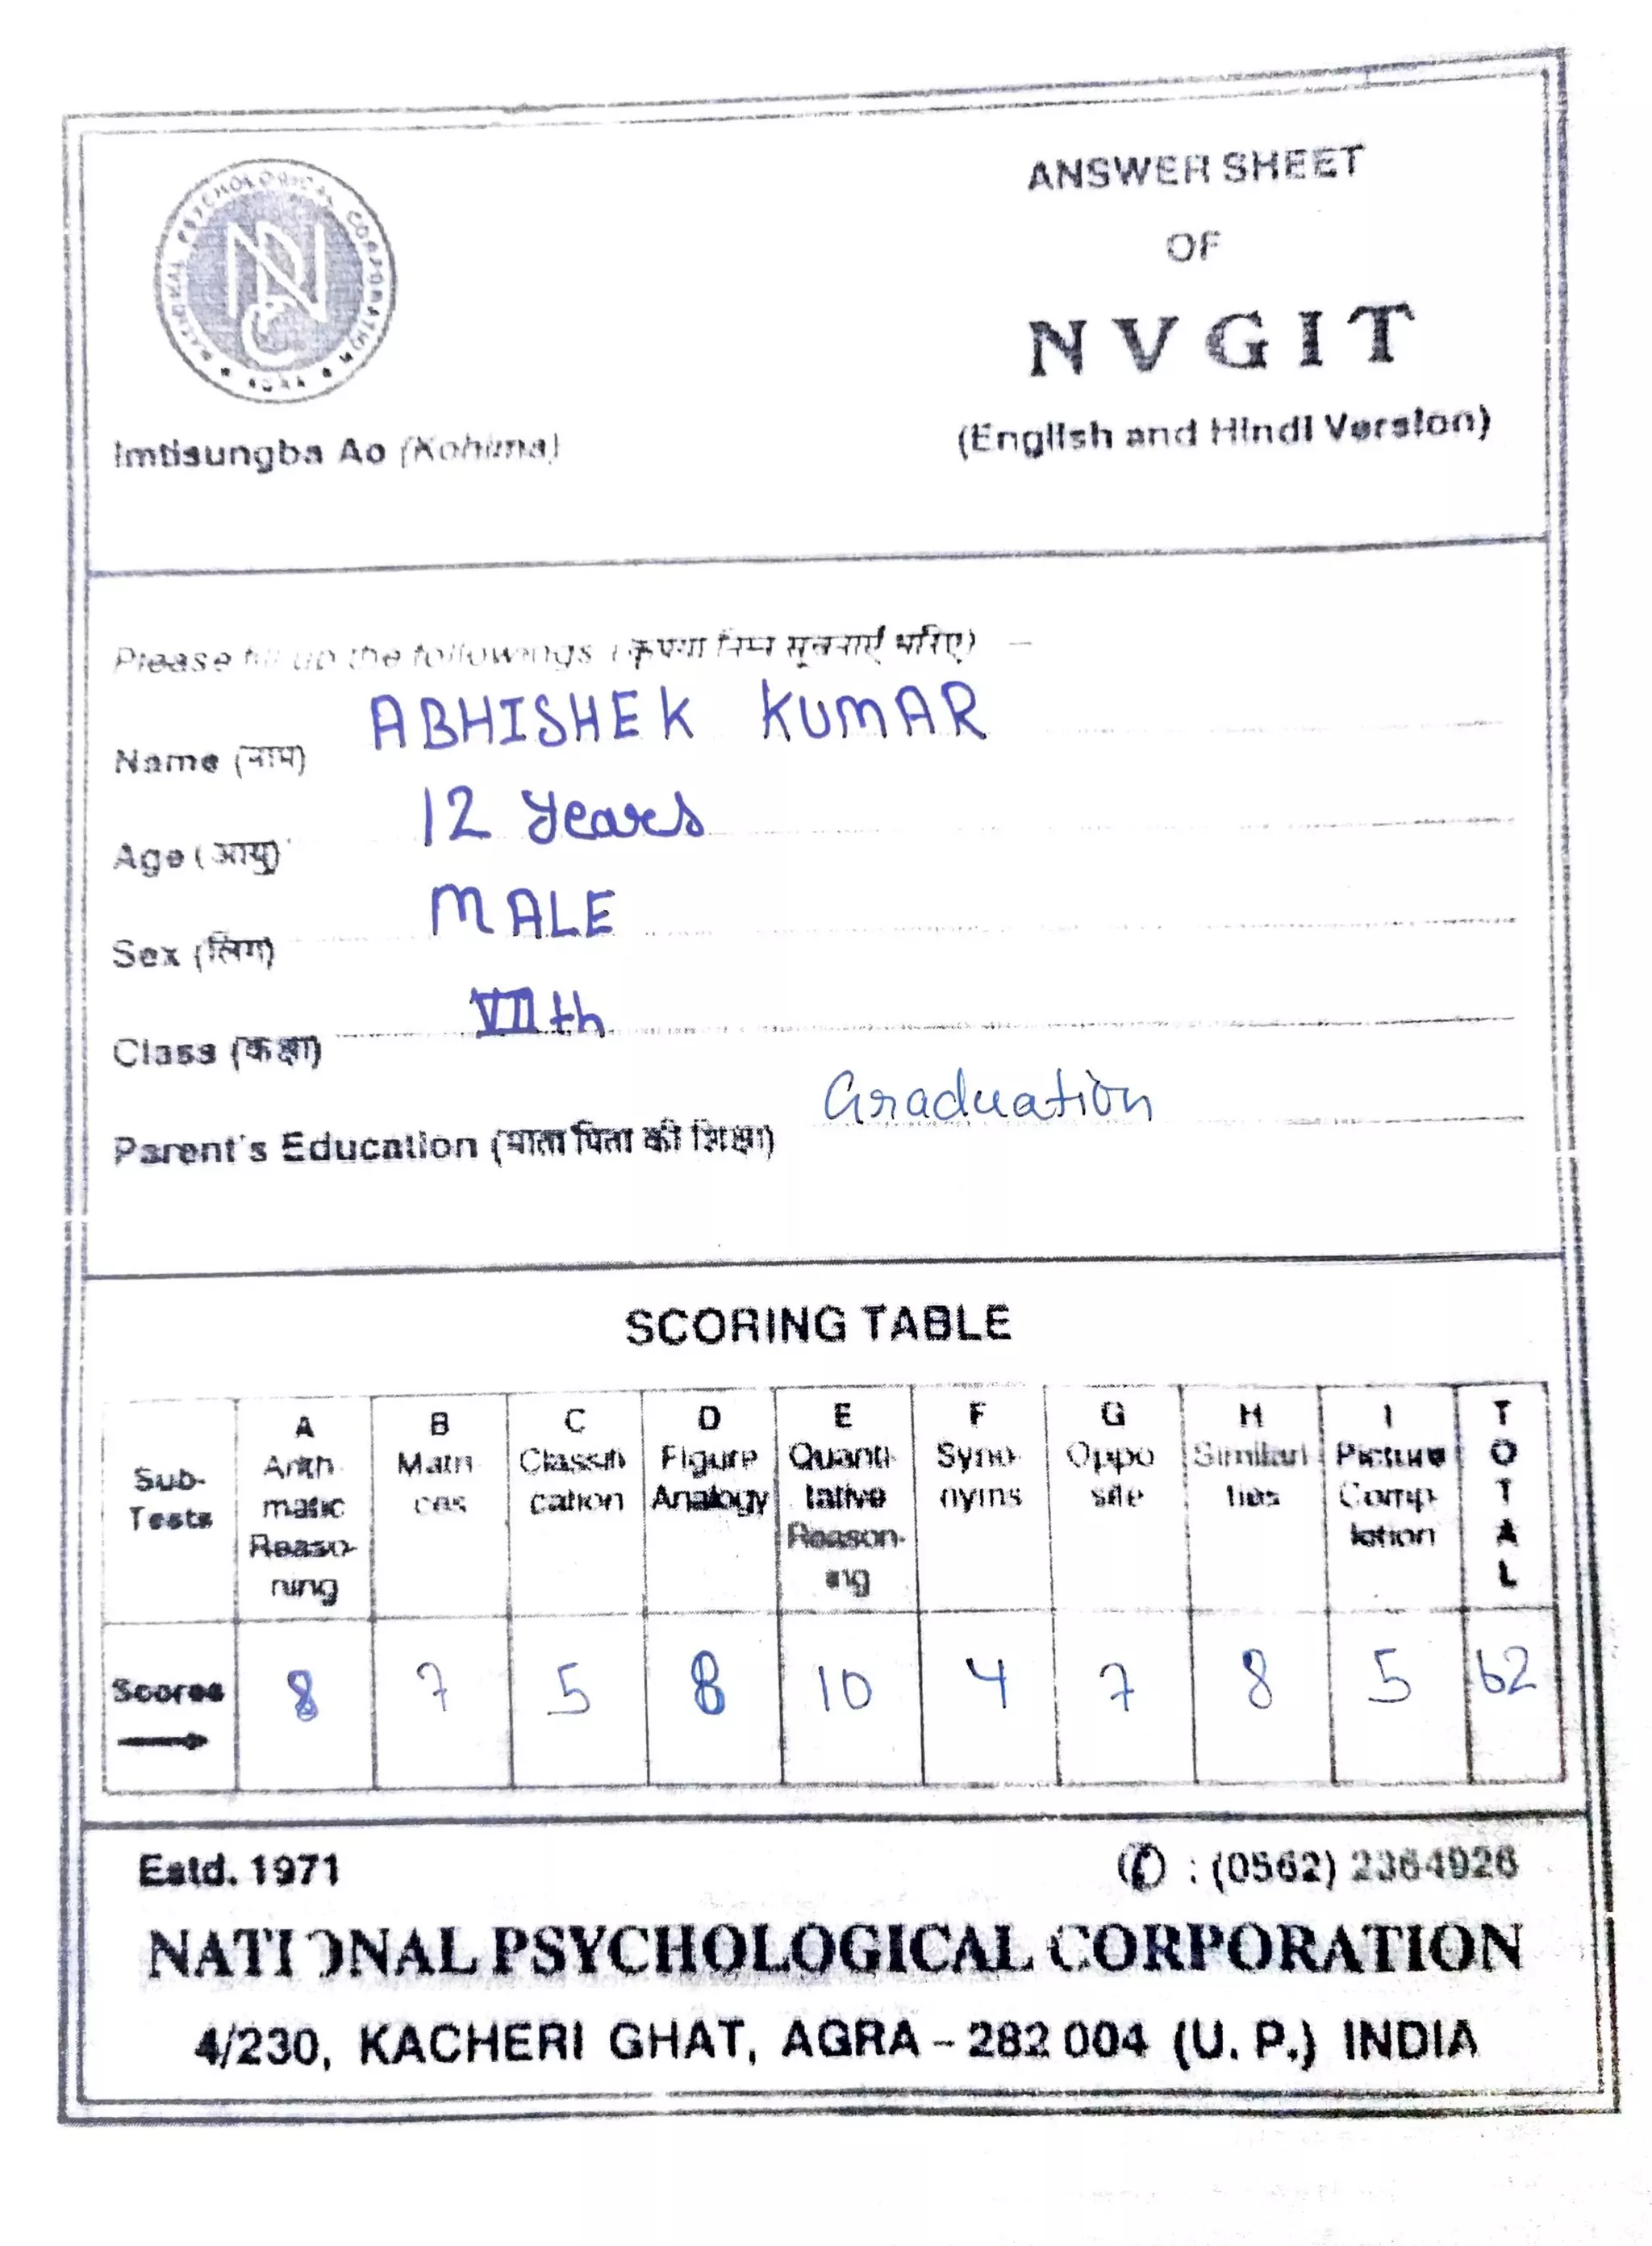 NATIONAL PSYCHOLOGICAL CORPORATION
AGRA
NPC
ANSWER SHEET
OF
NVGIT
(English and Hindi Version)
Imtisungba Ao (Kohima)
Please fill up the followings (कृपया निम्न सूचनाएँ भरिए) –
Name (नाम) ABHISHEK KUMAR
Age (आयु) 12 years
Sex (लिंग) MALE
Class (कक्षा) VIIth
Parent's Education (माता पिता की शिक्षा) Graduation
SCORING TABLE
Sub-Tests
A Arithmatic Reasoning
B Matrices
C Classification
D Figure Analogy
E Quantitative Reasoning
F Synonyms
G Opposite
H Similarities
I Picture Completion
TOTAL
Scores → 8 7 5 8 10 4 7 8 5 62
Estd. 1971
✆ : (0562) 2364926
NATIONAL PSYCHOLOGICAL CORPORATION
4/230, KACHERI GHAT, AGRA – 282 004 (U. P.) INDIA